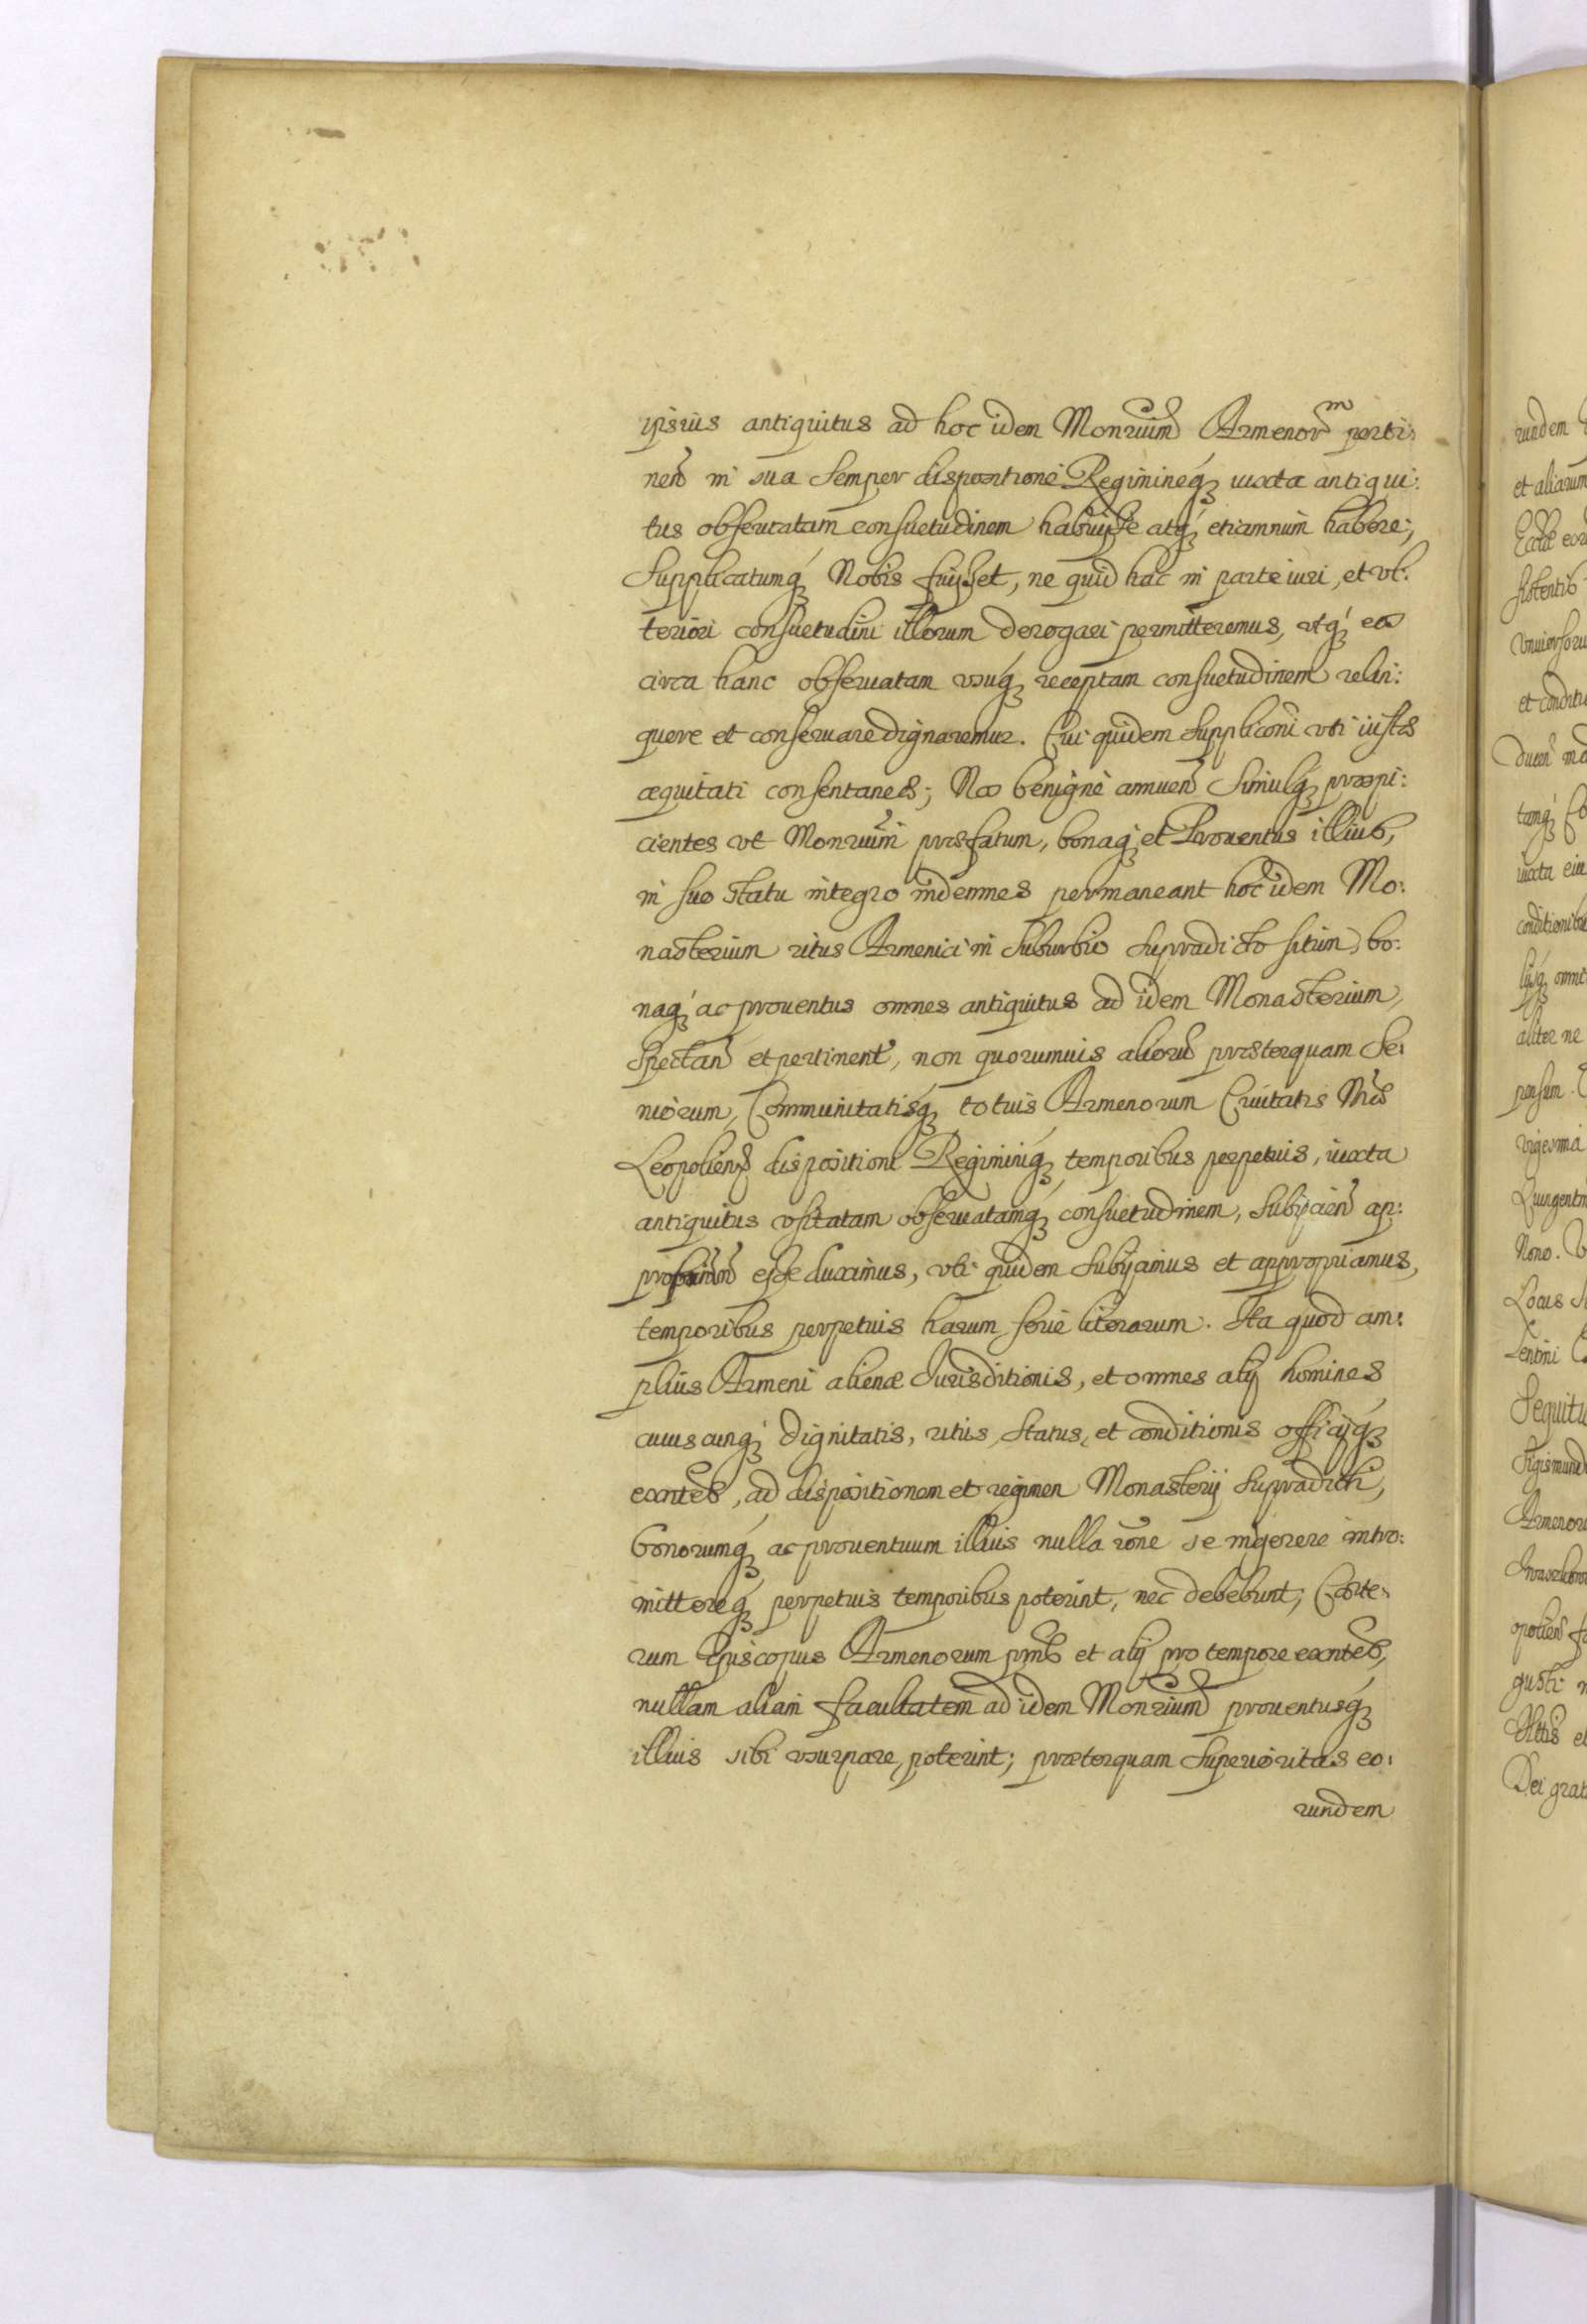 ipsius antiquitus ad hoc idem Monrium Armenor^m perti:
nen in sua semper dispositione Regimineq́ꝫ iuxta antiqui:
tus obseruatam consuetudinem habuisse atq́ꝫ etiamnum habere;
Supplicatumq́ꝫ Nobis fuisset, ne quid hac in parte iuri, et vl:
teriori consuetudini illorum derogari permitteremus, vtq́ꝫ eos
circa hanc obseruatam vsuq́ꝫ receptam consuetudinem relin:
quere et conseruare dignaremur. Cui quidem suppliconi vti iustæ
æquitati consentaneæ; Nos benigne annuen simulq́ꝫ prospi:
cientes vt Monrium præfatum, bonaq́ꝫ et Prouentus illius,
in suo statu integro indemnes permaneant hoc idem Mo:
nasterium ritus Armenici in suburbio supradicto situm, bo:
naq́ꝫ ac prouentus omnes antiquitus ad idem Monasterium
Spectan et pertinent, non quorumuis alioru præterquam Se:
niorum, Communitatisq́ꝫ totius Armenorum Ciuitatis nræ
Leopoliens dispositioni Regiminiq́ꝫ temporibus perpetuis, iuxta
antiquitus vsitatam obseruatamq́ꝫ consuetudinem, Subijcien ap:
esse duximus, vti quidem Subijcimus et appropriamus,
temporibus perpetuis harum serie literarum. Ita quod am:
plius Armeni alienæ Jurisditionis, et omnes alij homines
cuiuscunq́ꝫ dignitatis, ritus, Status, et conditionis officijq́ꝫ
exntes, ad dispositionem et regimen Monasterij supradicti,
bonorumq́ꝫ ac prouentuum illius nulla rone se ingerere intro:
mittereq́ꝫ perpetuis temporibus poterint, nec debebunt; Cæte:
rum Episcopus Armenorum pns et alij pro tempore exntes,
nullam aliam facultatem ad idem Monrium prouentusq́ꝫ
illius sibi vsurpare poterint; præterquam Superioritas eo:
rundem